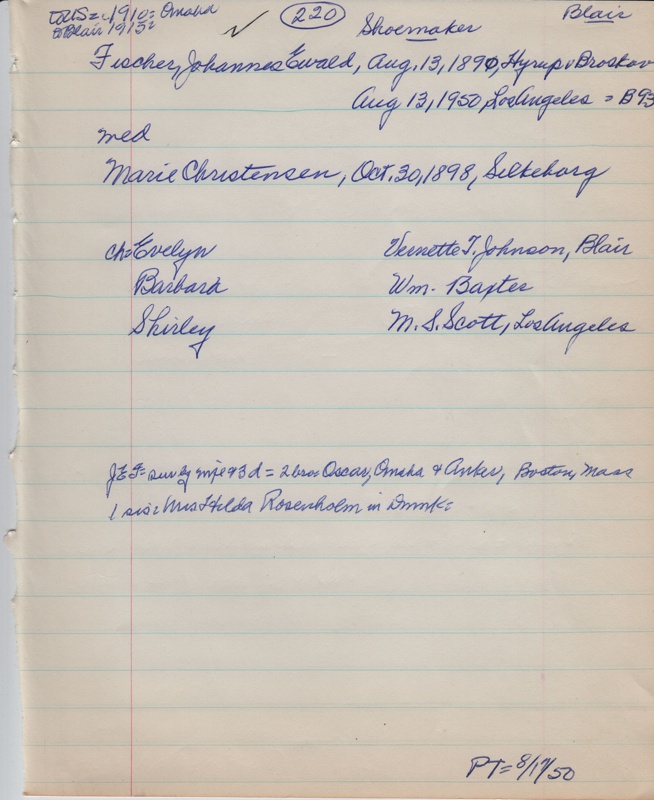 to US = c 1910 = Omaha
to Blair 1915 =
220
Shoemaker
Blair
Fischer, Johannes Ewald, Aug. 13, 1890, Hyrup v Broskov
Aug 13, 1950, Los Angeles = B 93
med
Marie Christensen, Oct. 30, 1898, Silkeborg
ch = Evelyn Vernette T. Johnson, Blair
Barbara Wm. Baxter
Shirley M. S. Scott, Los Angeles
J E F = surv by wife & 3 d = 2 bro = Oscar, Omaha & Anker, Boston, Mass
1 sis = Mrs Hilda Rosenholm in Dnmk =
PT = 8/17/50